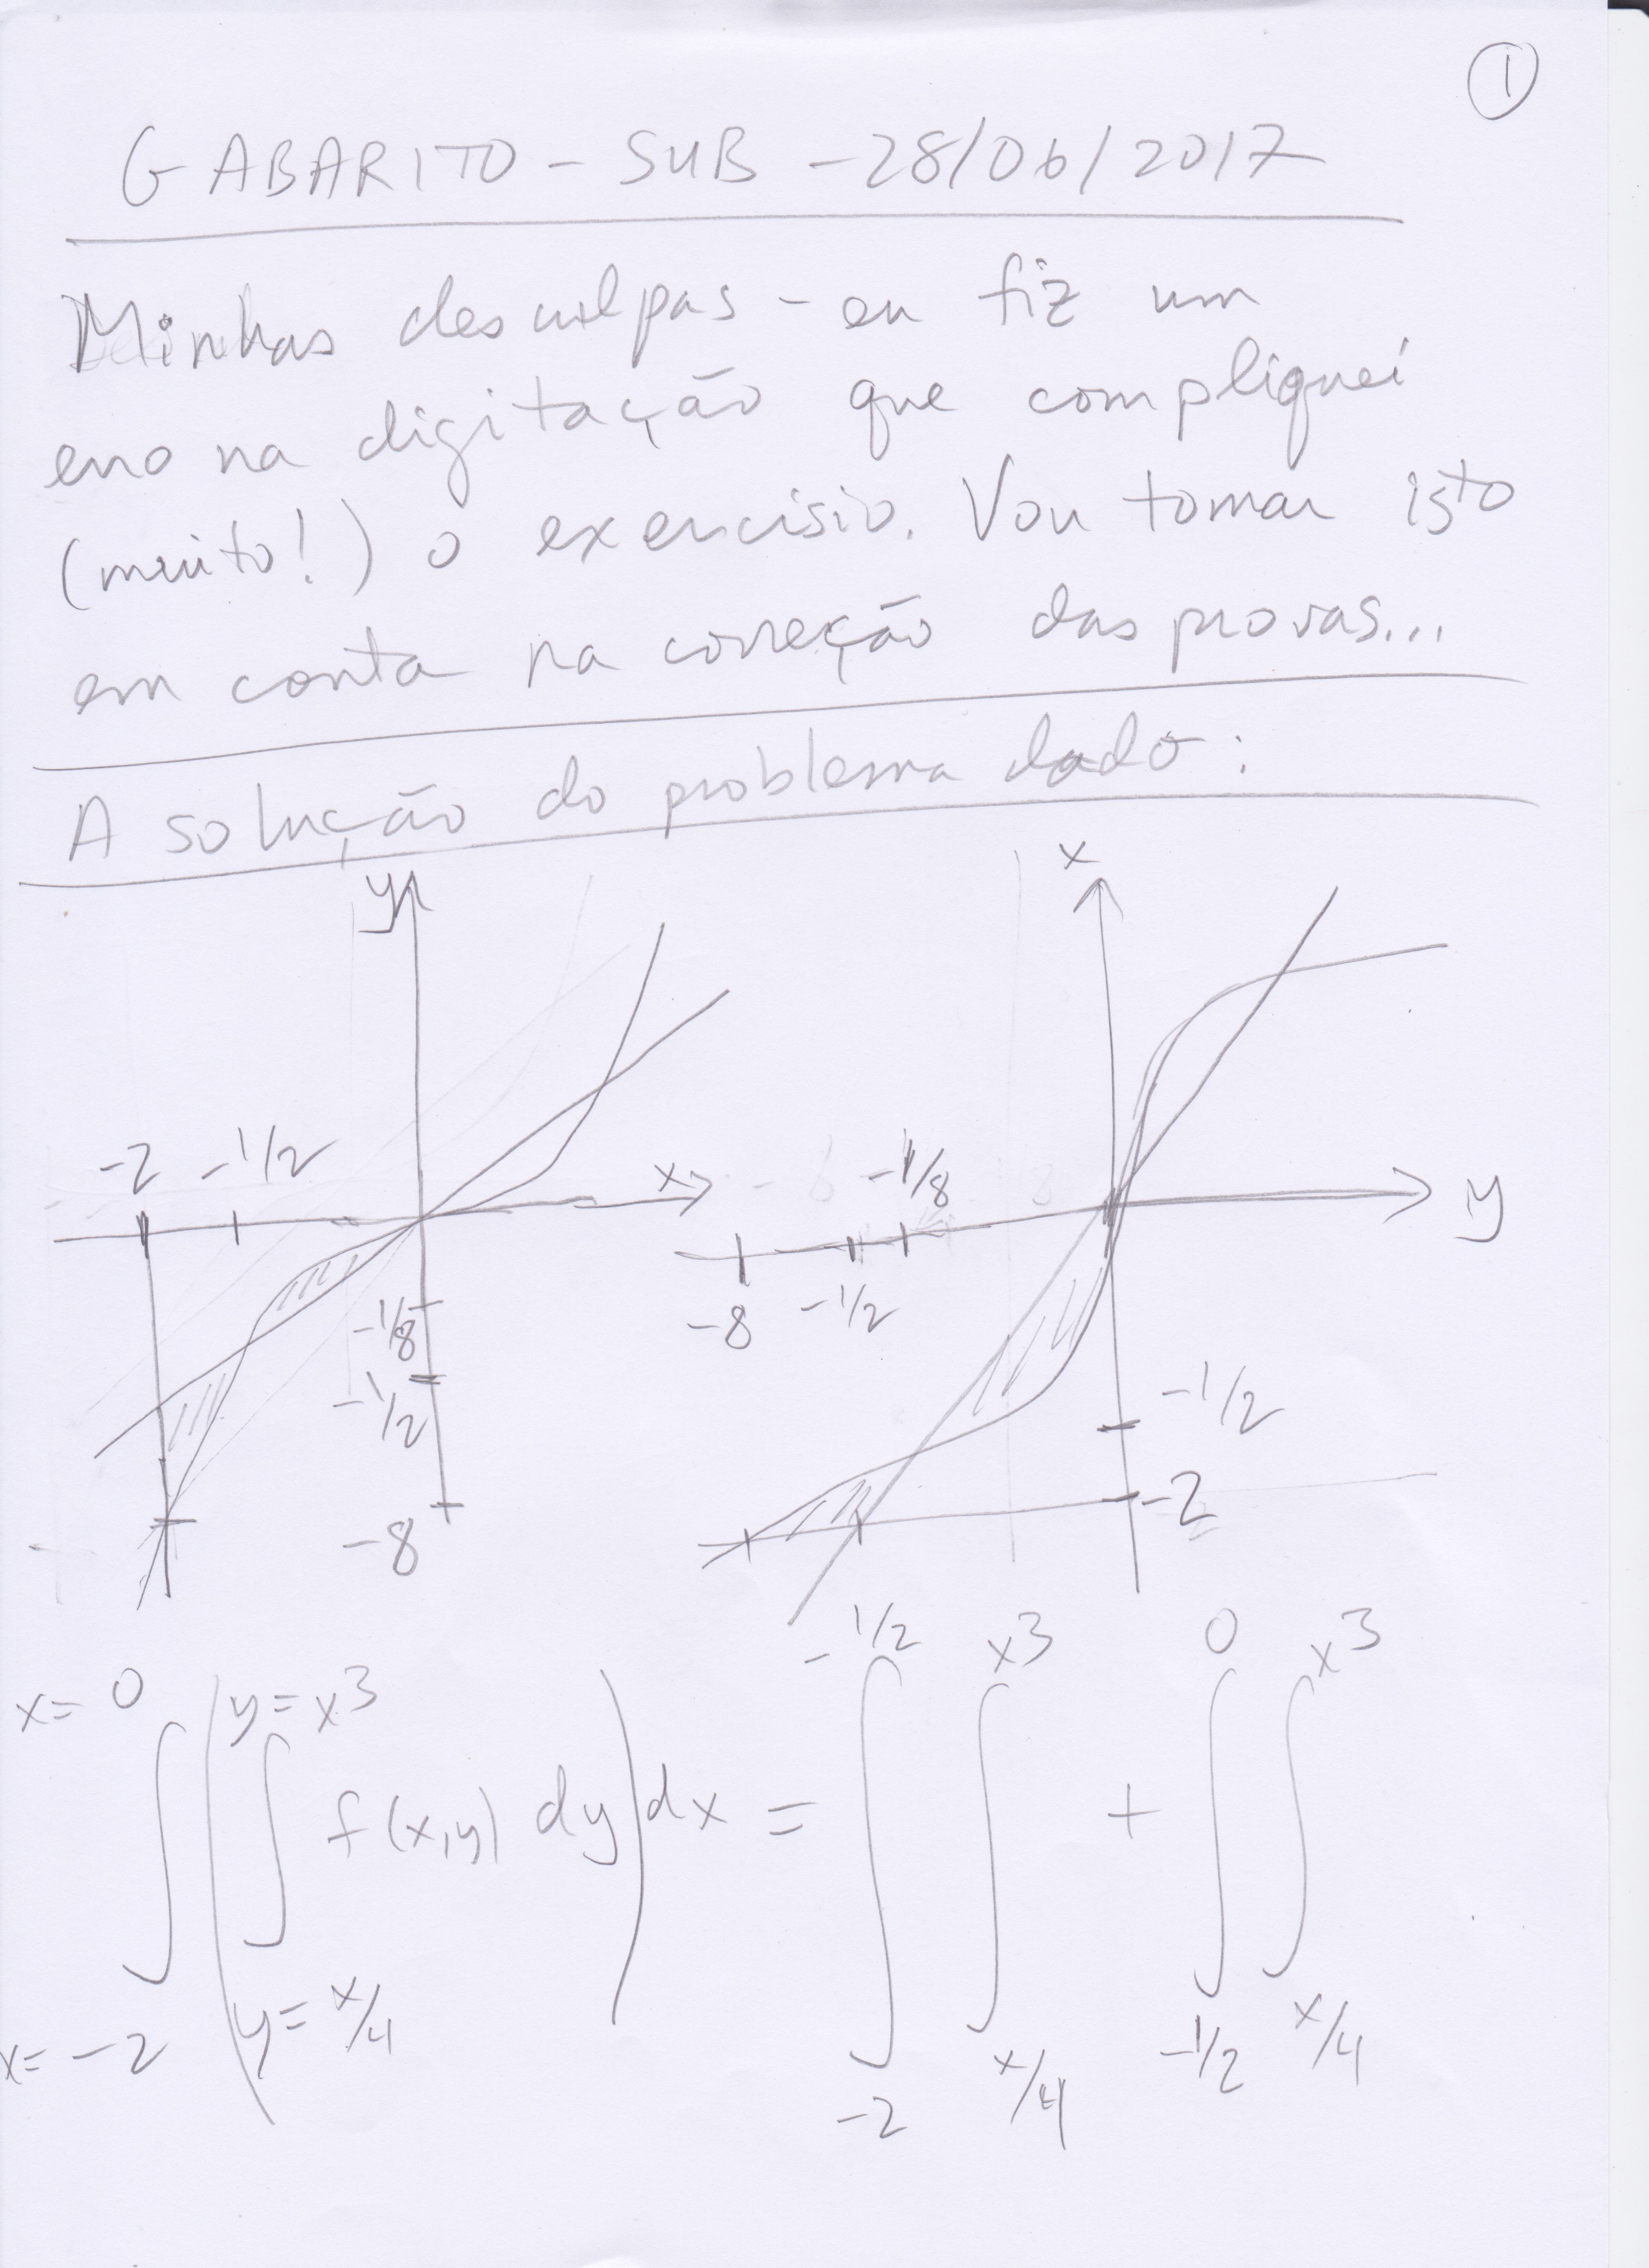 1
GABARITO - SUB - 28/06/2017
Minhas desculpas - eu fiz um
erro na digitação que compliquei
(muito!) o exercisio. Vou tomar isto
em conta na correção das provas...
A solução do problema dado:
y x
-2 -1/2 x -1/8 y
-8 -1/2
-1/8
-1/2 -1/2
-8 -2
x= 0 y= x3 -1/2 x3 0 x3
∫ ( ∫ f(x,y) dy ) dx = ∫ ∫ + ∫ ∫
x= -2 y= x/4 -2 x/4 -1/2 x/4